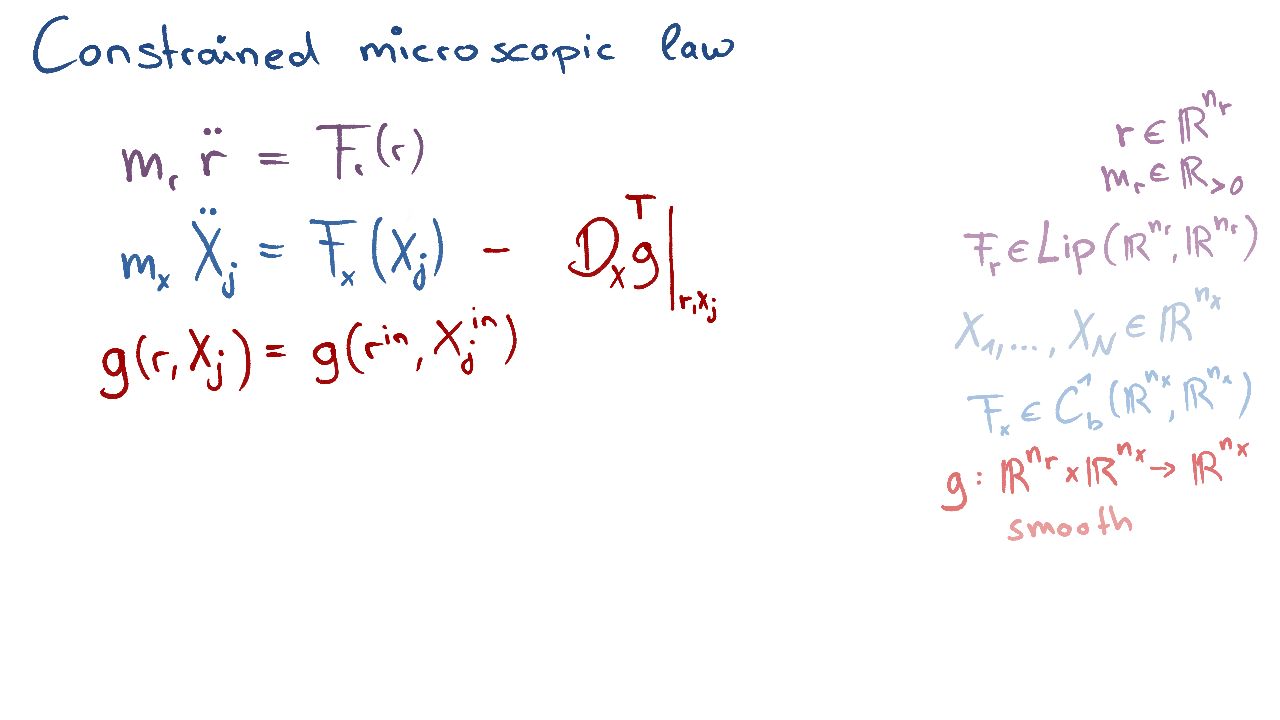 Constrained microscopic law
m_r r̈ = F_r(r)
m_x Ẍ_j = F_x(X_j) - D_x g^T |_{r,X_j}
g(r, X_j) = g(r^{in}, X_j^{in})
r ∈ ℝ^{n_r}
m_r ∈ ℝ_{>0}
F_r ∈ Lip(ℝ^{n_r}, ℝ^{n_r})
X_1, ..., X_N ∈ ℝ^{n_x}
F_x ∈ C_b^1(ℝ^{n_x}, ℝ^{n_x})
g : ℝ^{n_r} × ℝ^{n_x} → ℝ^{n_x}
smooth